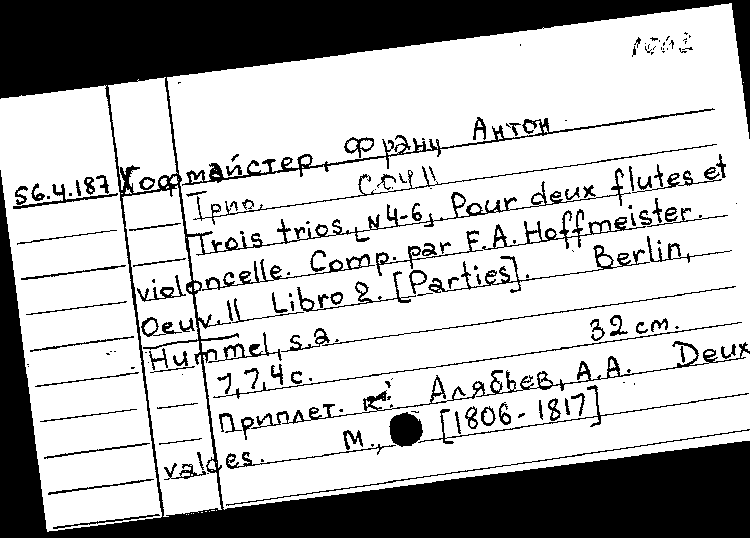 S6.4.187 Хофмайстер, Франц Антон
Трио. соч 11
Trois trios. [N 4-6]. Pour deux flutes et
violoncelle. Comp. par F.A. Hoffmeister.
Oeuv. 11 Libro 2. [Parties]. Berlin,
Hummel, s.a.
7,7,4 с. 32 cm.
Приплет. к: Алябьев, А.А. Deux
valces. М., [1806-1817]